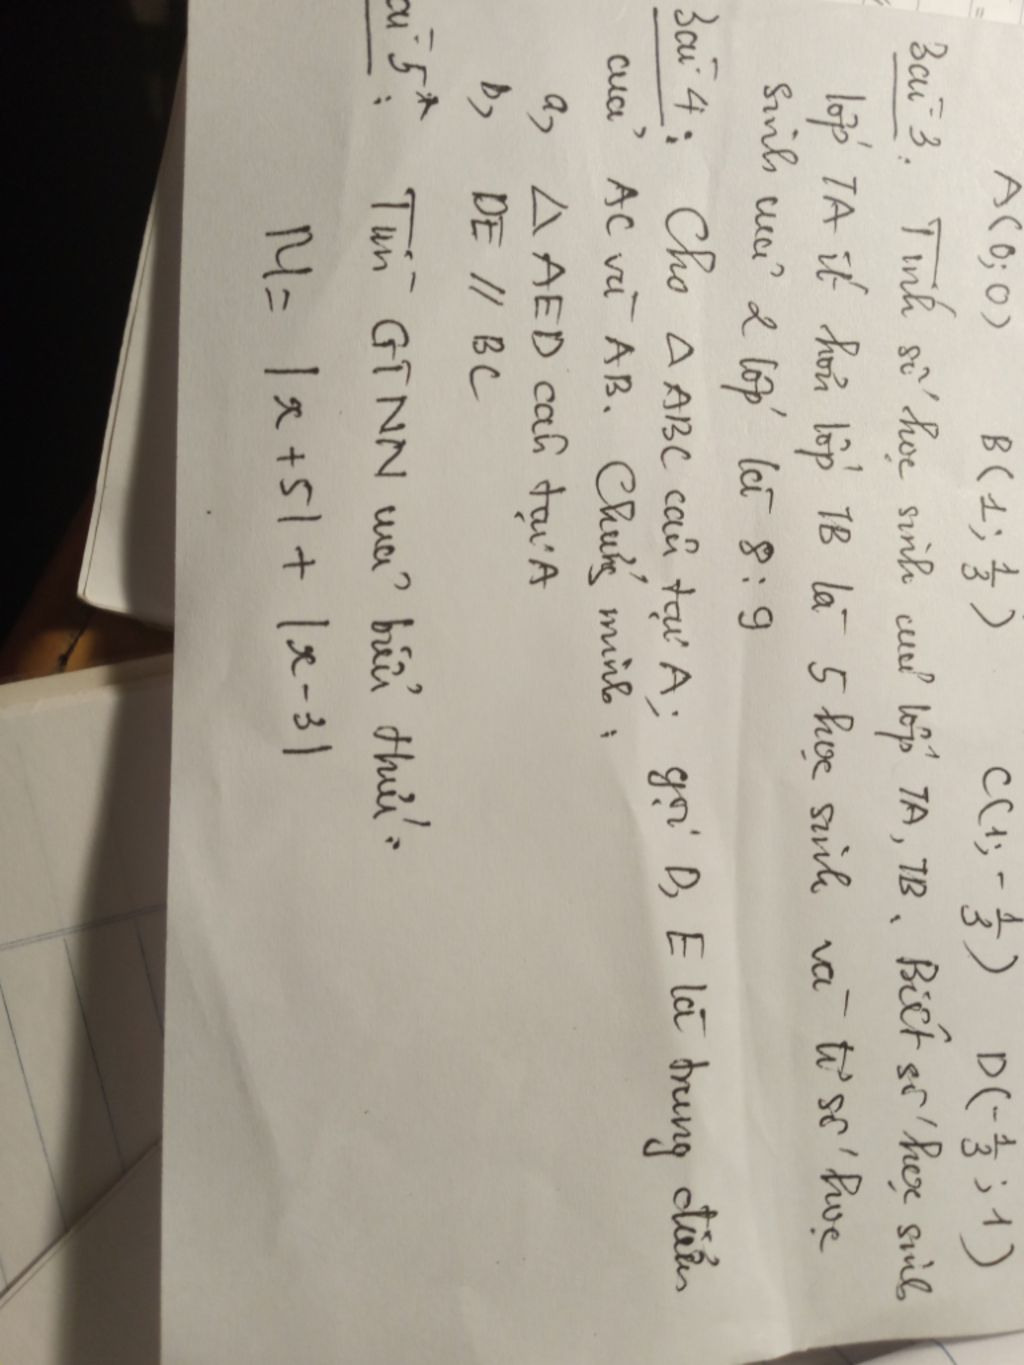 A(0;0) B(1; 1/3) C(1; -1/3) D(-1/3; 1)
Bài 3: Tính số học sinh của lớp 7A, 7B. Biết số học sinh
lớp 7A ít hơn lớp 7B là 5 học sinh và tỉ số học
sinh của 2 lớp là 8:9
Bài 4: Cho △ABC cân tại A; gọi D, E là trung điểm
của AC và AB. Chứng minh:
a, △AED cân tại A
b, DE // BC
Bài 5*: Tìm GTNN của biểu thức:
M = |x+5| + |x-3|